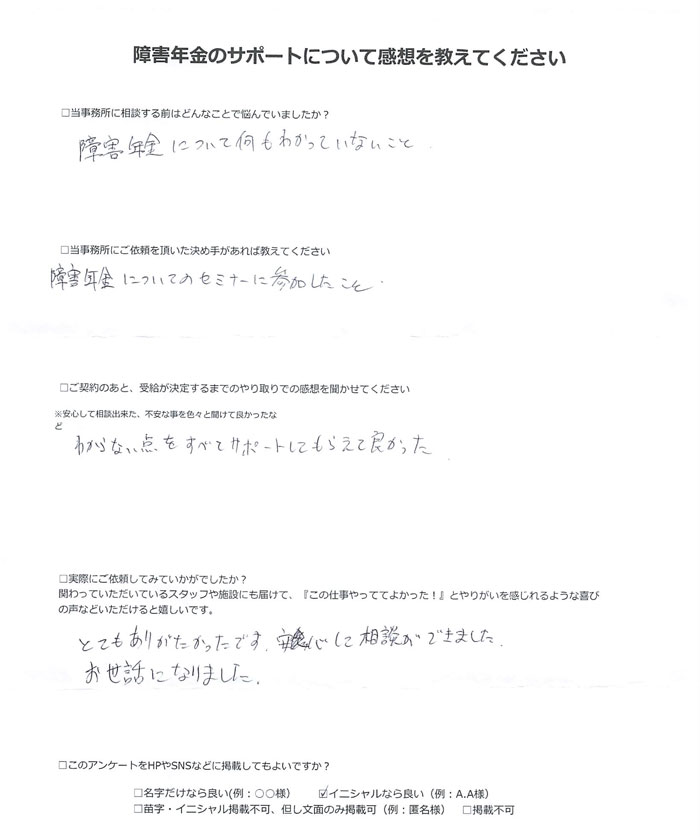 障害年金のサポートについて感想を教えてください
□当事務所に相談する前はどんなことで悩んでいましたか？
障害年金について何もわかっていないこと
□当事務所にご依頼を頂いた決め手があれば教えてください
障害年金についてのセミナーに参加したこと.
□ご契約のあと、受給が決定するまでのやり取りでの感想を聞かせてください
※安心して相談出来た、不安な事を色々と聞けて良かったな
ど
わからない点をすべてサポートしてもらえて良かった
□実際にご依頼してみていかがでしたか？
関わっていただいているスタッフや施設にも届けて、『この仕事やっててよかった！』とやりがいを感じれるような喜び
の声などいただけると嬉しいです。
とてもありがたかったです. 安心して相談ができました.
お世話になりました.
□このアンケートをHPやSNSなどに掲載してもよいですか？
□名字だけなら良い(例：○○様） ☑イニシャルなら良い（例：A.A様）
□苗字・イニシャル掲載不可、但し文面のみ掲載可（例：匿名様） □掲載不可